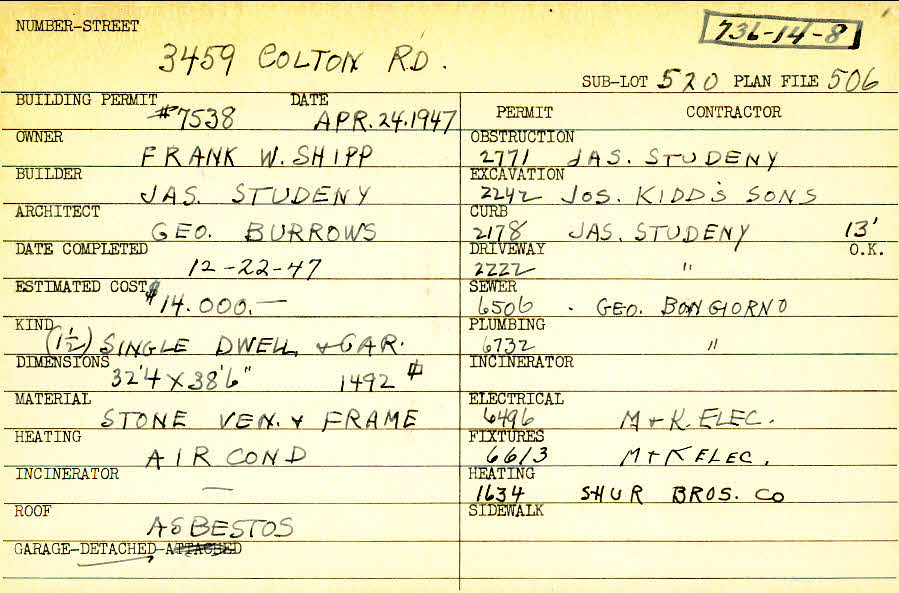 NUMBER-STREET
736-14-8
3459 COLTON RD.
SUB-LOT 520 PLAN FILE 506
BUILDING PERMIT DATE
#7538 APR. 24. 1947
OWNER
FRANK W. SHIPP
BUILDER
JAS. STUDENY
ARCHITECT
GEO. BURROWS
DATE COMPLETED
12-22-47
ESTIMATED COST
$14.000.—
KIND
(1½) SINGLE DWELL. & GAR.
DIMENSIONS
32'4 X 38'6" 1492 #
MATERIAL
STONE VEN. & FRAME
HEATING
AIR COND
INCINERATOR
—
ROOF
ASBESTOS
GARAGE-DETACHED-ATTACHED
PERMIT CONTRACTOR
OBSTRUCTION
2771 JAS. STUDENY
EXCAVATION
2242 JOS. KIDD'S SONS
CURB
2178 JAS. STUDENY 13'
DRIVEWAY O.K.
2222 "
SEWER
6506 . GEO. BONGIORNO
PLUMBING
6732 "
INCINERATOR
ELECTRICAL
6496 M + K. ELEC.
FIXTURES
6613 M + K ELEC.
HEATING
1634 SHUR BROS. CO
SIDEWALK